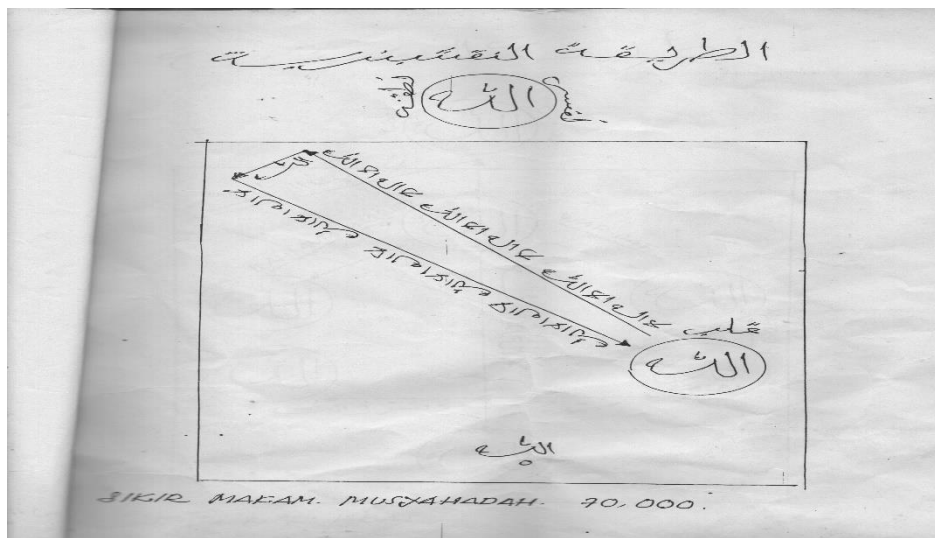 الطريقة النقشبندية
الله
لا إله إلا الله لا إله إلا الله لا إله إلا الله
لا إله إلا الله لا إله إلا الله لا إله إلا الله
قلب
الله
الله
ZIKIR MAKAM. MUSYAHADAH. 70,000.